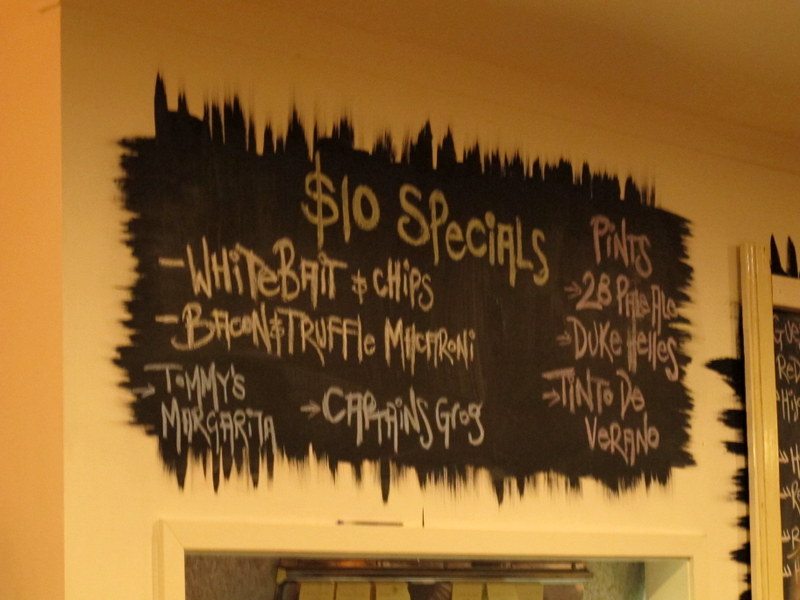 $10 SPeciALS
-WHiTeBAiT & CHiPS
-BACON & TRUFFle MACARONi
→TOMMY'S
MARGARITA
→CAPTAINS GROG
PiNTS
→2B PAle Ale
→DUKE Helles
→TiNTO De
VERANO